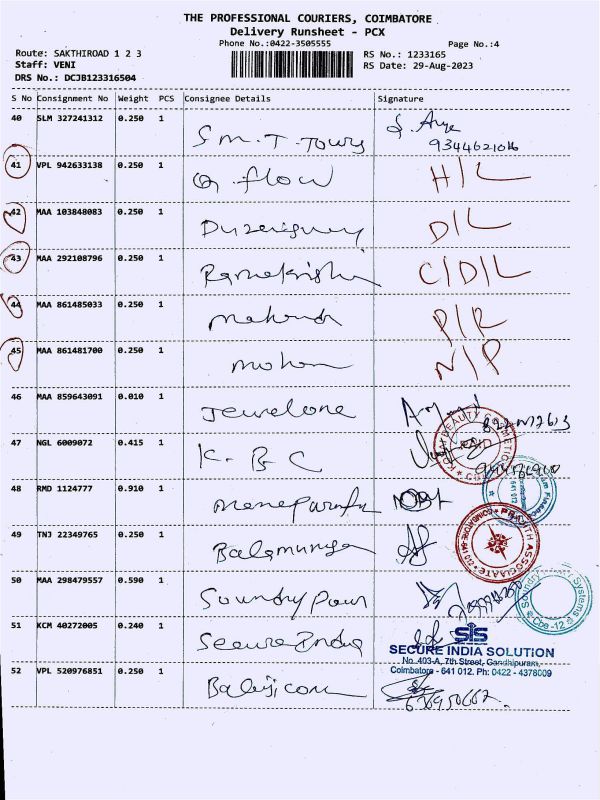 THE PROFESSIONAL COURIERS, COIMBATORE
Delivery Runsheet - PCX
Phone No.:0422-3505555
Page No.:4
Route: SAKTHIROAD 1 2 3
RS No.: 1233165
Staff: VENI
RS Date: 29-Aug-2023
DRS No.: DCJB123316504
S No Consignment No Weight PCS Consignee Details Signature
40 SLM 327241312 0.250 1 S.M.T. Tours
9344621016
41 VPL 942633138 0.250 1 Q. flow H/L
42 MAA 103848083 0.250 1 D/L
43 MAA 292108796 0.250 1 Ramakrishn C/D/L
44 MAA 861485033 0.250 1 P/R
45 MAA 861481700 0.250 1 mohan N/P
46 MAA 859643091 0.010 1 Jewelone
47 NGL 6009072 0.415 1 K. B C
48 RMD 1124777 0.910 1
49 TNJ 22349765 0.250 1 Balamuruga
50 MAA 298479557 0.590 1
51 KCM 40272005 0.240 1 Secure India
SIS
SECURE INDIA SOLUTION
No. 403-A, 7th Street, Gandhipuram,
Coimbatore - 641 012. Ph: 0422 - 4378009
52 VPL 520976851 0.250 1 Balaji com